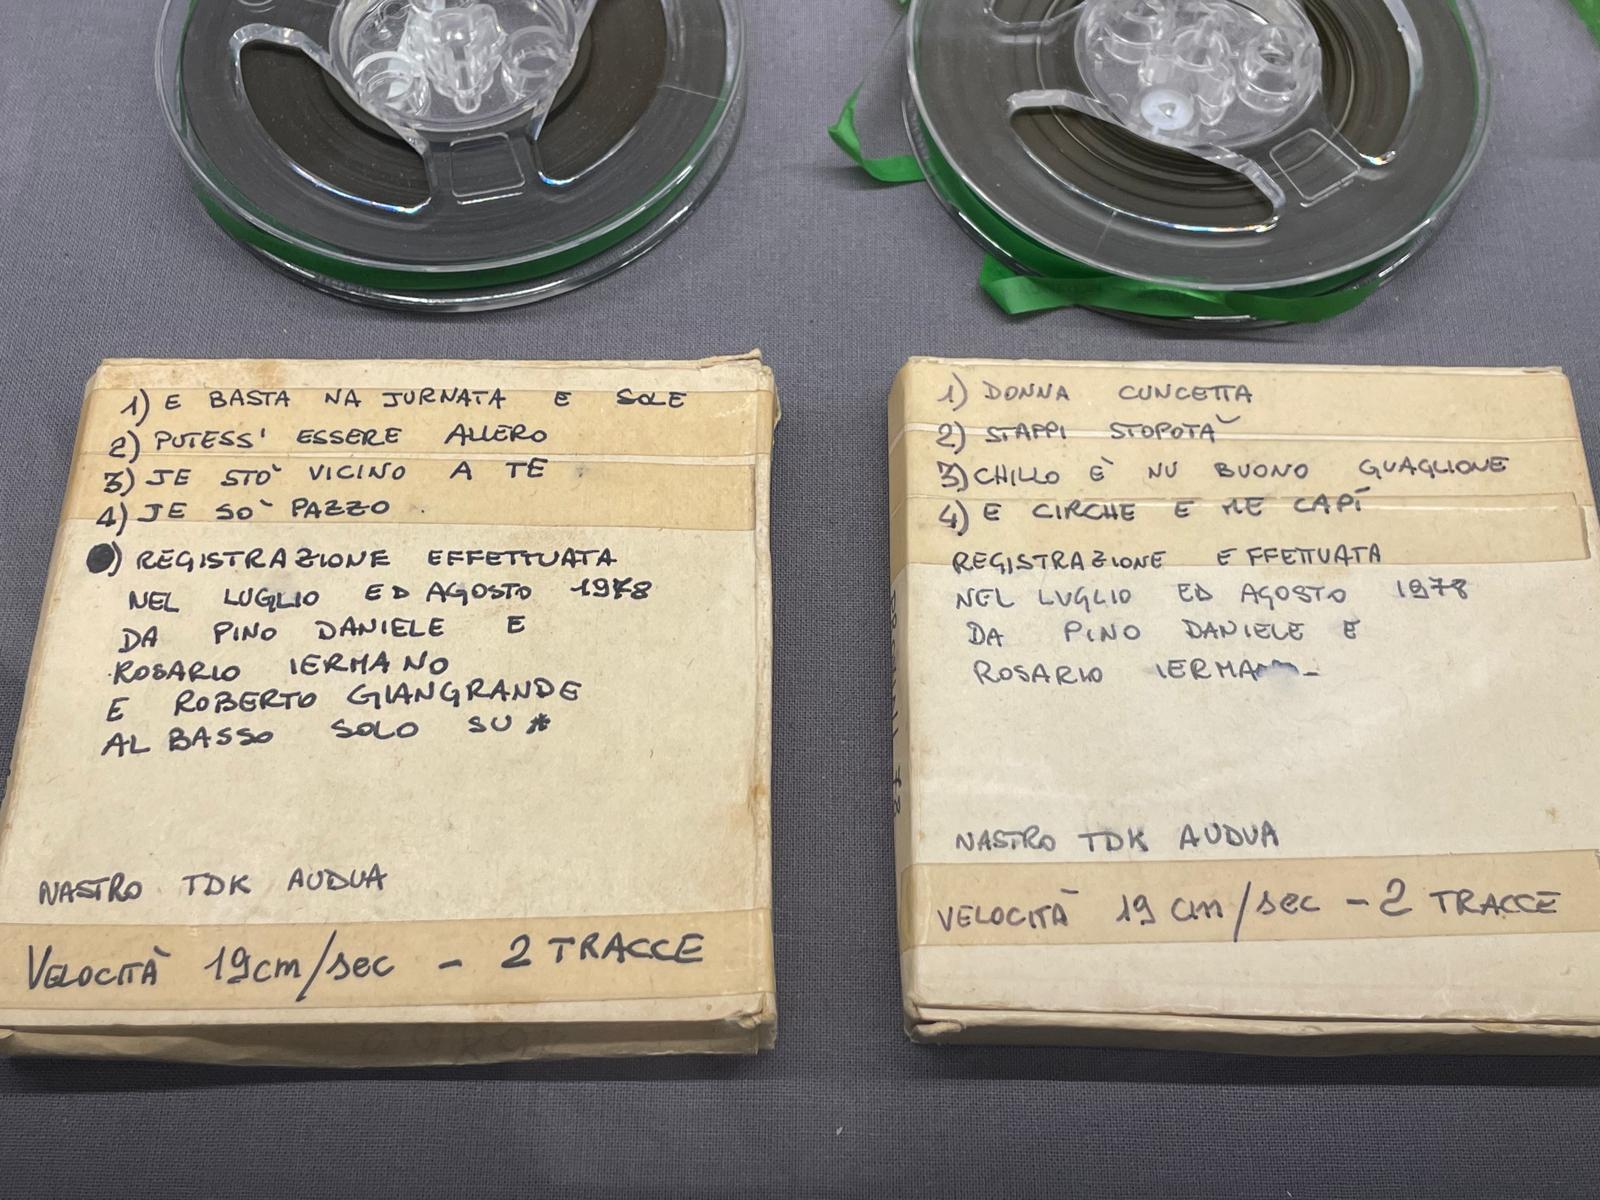 1) E BASTA NA JURNATA E SOLE
2) PUTESS' ESSERE ALLERO
3) JE STÒ VICINO A TE
4) JE SÒ PAZZO
) REGISTRAZIONE EFFETTUATA
NEL LUGLIO ED AGOSTO 1978
DA PINO DANIELE E
ROSARIO IERMANO
E ROBERTO GIANGRANDE
AL BASSO SOLO SU *
NASTRO TDK AUDUA
VELOCITÀ 19cm/sec - 2 TRACCE
1) DONNA CUNCETTA
2) STAPPI STOPOTÀ
3) CHILLO È NU BUONO GUAGLIONE
4) E CIRCHE E ME CAPÌ
REGISTRAZIONE EFFETTUATA
NEL LUGLIO ED AGOSTO 1978
DA PINO DANIELE E
ROSARIO
NASTRO TDK AUDUA
VELOCITÀ 19 cm/sec - 2 TRACCE